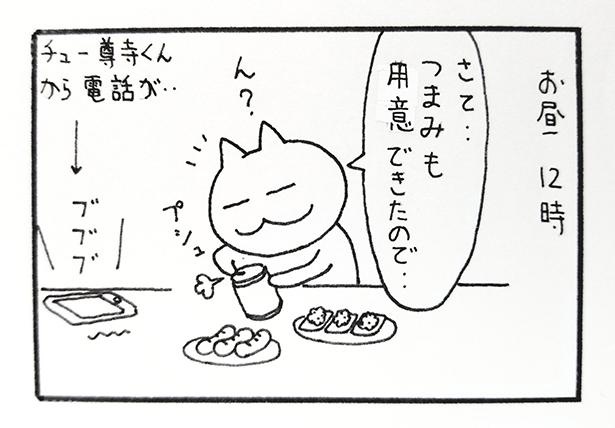 お昼 12時
さて‥
つまみも
用意できたので‥
ん?
プシュ
チュー尊寺くん
から電話が‥
ブブブ